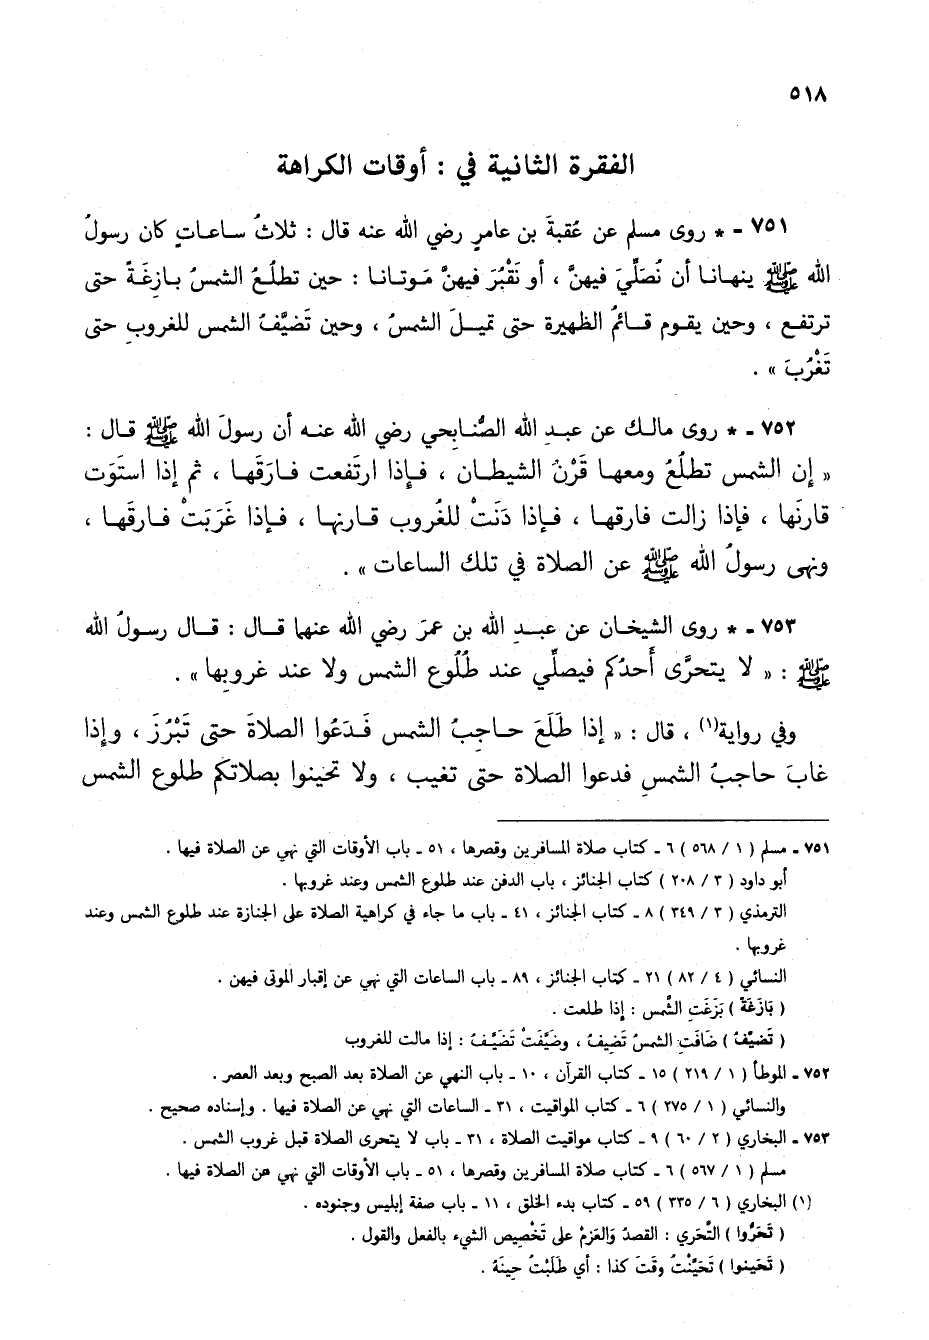 ٥١٨
الفقرة الثانية في : أوقات الكراهة
٧٥١ - * روى مسلم عن عُقبةَ بن عامرٍ رضي الله عنه قال : ثلاثُ ساعاتٍ كان رسولُ
الله ﷺ ينهانا أن نُصَلِّيَ فيهنَّ ، أو نَقْبُرَ فيهنَّ مَوتانا : حين تطلُعُ الشمسُ بازِغَةً حتى
ترتفع ، وحين يقوم قائمُ الظهيرة حتى تميلَ الشمسُ ، وحين تَضَيَّفُ الشمس للغروبِ حتى
تَغْرُبَ » .
٧٥٢ - * روى مالك عن عبدِ الله الصُّنابِحي رضي الله عنه أن رسولَ الله ﷺ قال :
« إن الشمس تطلُعُ ومعها قَرْنُ الشيطان ، فإذا ارتَفعت فارَقَها ، ثم إذا استَوَت
قارنَها ، فإذا زالت فارقها ، فإذا دَنَتْ للغُروب قارنها ، فإذا غَرَبَتْ فارقَها ،
ونهى رسولُ الله ﷺ عن الصلاة في تلك الساعات » .
٧٥٣ - * روى الشيخان عن عبدِ الله بن عمرَ رضي الله عنهما قال : قال رسولُ الله
ﷺ : « لا يتحرَّى أَحدُكم فيصلِّي عند طُلُوع الشمس ولا عند غروبِها » .
وفي رواية(١) ، قال : « إذا طَلَعَ حاجبُ الشمس فَدَعُوا الصلاةَ حتى تَبْرُزَ ، وإذا
غابَ حاجبُ الشمسِ فدعوا الصلاة حتى تغيب ، ولا تحينوا بصلاتكم طلوع الشمس
٧٥١ - مسلم ( ١ / ٥٦٨ ) ٦ - كتاب صلاة المسافرين وقصرها ، ٥١ - باب الأوقات التي نهي عن الصلاة فيها .
أبو داود ( ٣ / ٢٠٨ ) كتاب الجنائز ، باب الدفن عند طلوع الشمس وعند غروبها .
الترمذي ( ٣ / ٣٤٩ ) ٨ - كتاب الجنائز ، ٤١ - باب ما جاء في كراهية الصلاة على الجنازة عند طلوع الشمس وعند
غروبها .
النسائي ( ٤ / ٨٢ ) ٢١ - كتاب الجنائز ، ٨٩ - باب الساعات التي نهي عن إقبار الموتى فيهن .
( بَازِغَةً ) بَزَغَتِ الشَّمس : إذا طلعت .
( تَضَيَّفُ ) ضَافَتِ الشمسُ تَضِيفُ ، وضَيَّفَتْ تَضَيَّفُ : إذا مالت للغروب
٧٥٢ - الموطأ ( ١ / ٢١٩ ) ١٥ - كتاب القرآن ، ١٠ - باب النهي عن الصلاة بعد الصبح وبعد العصر .
والنسائي ( ١ / ٢٧٥ ) ٦ - كتاب المواقيت ، ٣١ - الساعات التي نهي عن الصلاة فيها . وإسناده صحيح .
٧٥٣ - البخاري ( ٢ / ٦٠ ) ٩ - كتاب مواقيت الصلاة ، ٣١ - باب لا يتحرى الصلاة قبل غروب الشمس .
مسلم ( ١ / ٥٦٧ ) ٦ - كتاب صلاة المسافرين وقصرها ، ٥١ - باب الأوقات التي نهي عن الصلاة فيها .
(١) البخاري ( ٦ / ٣٣٥ ) ٥٩ - كتاب بدء الخلق ، ١١ - باب صفة إبليس وجنوده .
( تَحَرُّوا ) التَّحَري : القصدُ وَالعَزمُ على تَخْصِيص الشيء بالفعل والقول .
( تَحَينوا ) تَحَيَّنْتُ وقتَ كذا : أي طَلَبْتُ حِينَهُ .